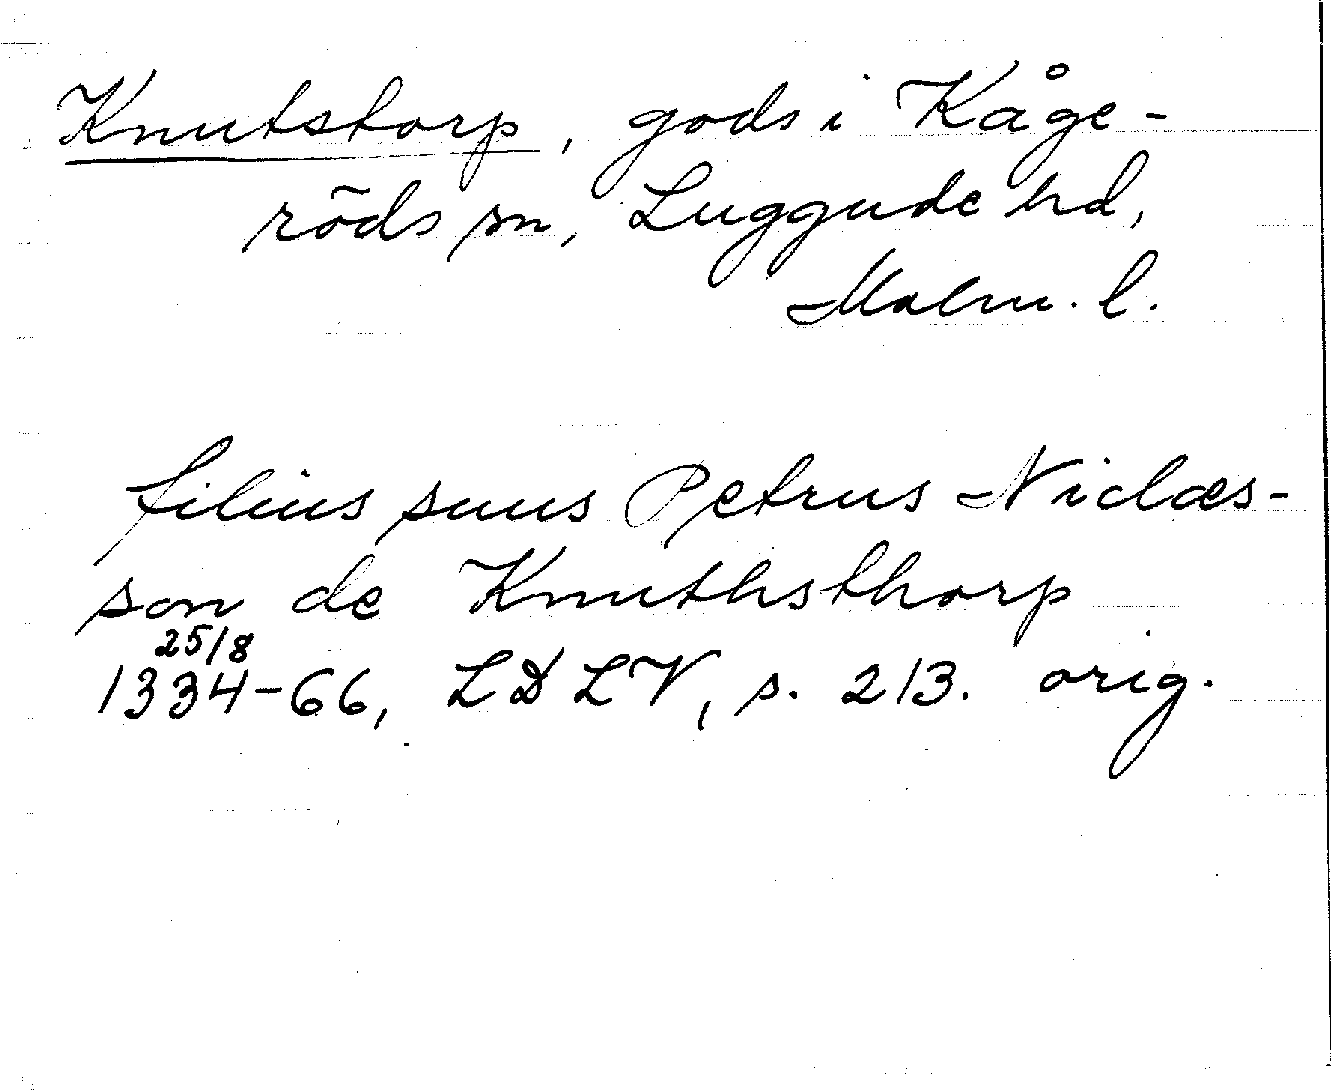 Knutstorp, gods i Kåge-
röds sn, Luggude hd,
Malm. l.
filius suus Petrus Niclæs-
son de Knuthsthorp
25/8
1334-66, LDLV, s. 213. orig.